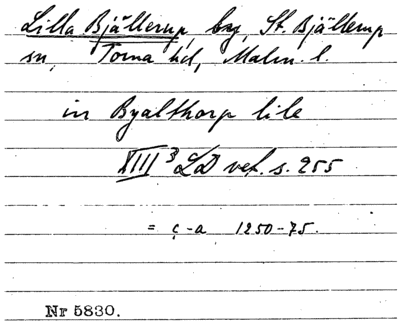 Lilla Bjällerup, by, St. Bjällerup
sn, Torna hd, Malm. l.
in Byalthorp lile
XIII 3 LD vet. s. 255
= c-a 1250-75.
Nr 5830.